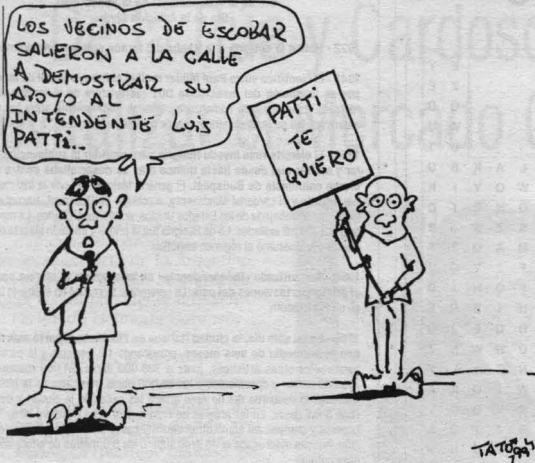 LOS VECINOS DE ESCOBAR
SALIERON A LA CALLE
A DEMOSTRAR SU
APOYO AL
INTENDENTE LUIS
PATTI...
PATTI
TE
QUIERO
TATO 1994